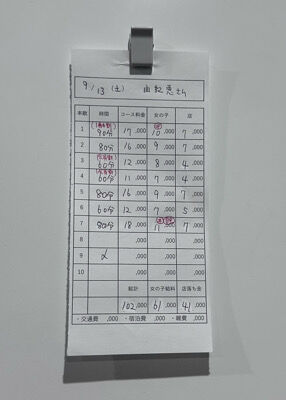 9/13 (土) 由紀恵さん
本数 時間 コース料金 女の子 店
1 90分 17,000 10,000 7,000
2 80分 16,000 9,000 7,000
3 60分 12,000 8,000 4,000
4 60分 11,000 7,000 4,000
5 80分 16,000 9,000 7,000
6 60分 12,000 7,000 5,000
7 80分 18,000 11,000 7,000
8 ,000 ,000 ,000
9 ,000 ,000 ,000
10 ,000 ,000 ,000
総計 女の子給料 店落ち金
102,000 61,000 41,000
・交通費 ,000 ・宿泊費 ,000 ・雑費 ,000